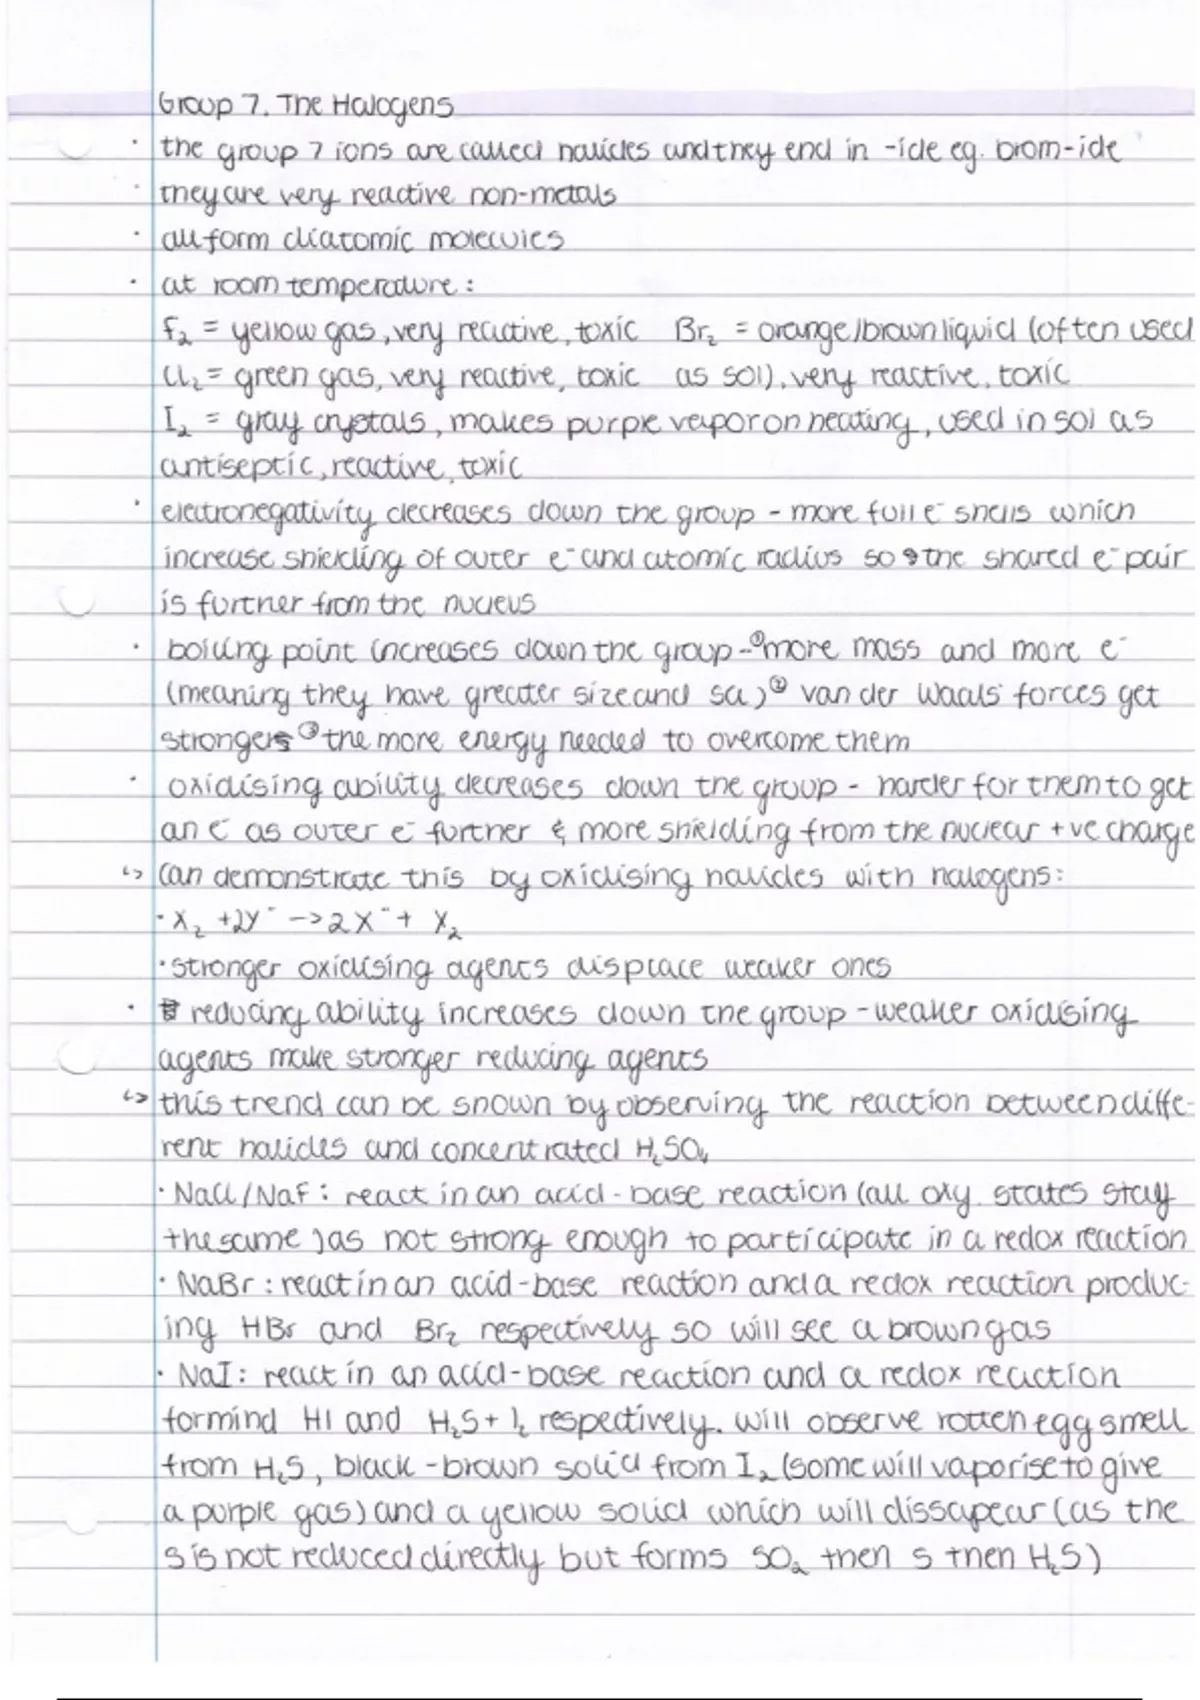 Group 7. The Halogens
· the group 7 ions are called halides and they end in -ide eg. brom-ide
· they are very reactive non-metals
· all form diatomic molecules
· at room temperature:
F₂ = yellow gas, very reactive, toxic Br₂ = orange/brown liquid (often used
Cl₂ = green gas, very reactive, toxic as sol), very reactive, toxic
I₂ = gray crystals, makes purple vapor on heating, used in sol as
antiseptic, reactive, toxic
· electronegativity decreases down the group - more full e⁻ shells which
increase shielding of outer e⁻ and atomic radius so the shared e⁻ pair
is further from the nucleus
· boiling point increases down the group - ① more mass and more e⁻
(meaning they have greater size and sa) ② van der Waals forces get
stronger ③ the more energy needed to overcome them
· oxidising ability decreases down the group - harder for them to get
an e⁻ as outer e⁻ further & more shielding from the nuclear +ve charge
↳ Can demonstrate this by oxidising halides with halogens:
· X₂ + 2Y⁻ -> 2X⁻ + Y₂
· stronger oxidising agents displace weaker ones
· reducing ability increases down the group - weaker oxidising
agents make stronger reducing agents
↳ this trend can be shown by observing the reaction between diffe-
rent halides and concentrated H₂SO₄
· NaCl/NaF: react in an acid-base reaction (all oxy. states stay
the same) as not strong enough to participate in a redox reaction
· NaBr: react in an acid-base reaction and a redox reaction produc-
ing HBr and Br₂ respectively so will see a brown gas
· NaI: react in an acid-base reaction and a redox reaction
formind HI and H₂S + I₂ respectively. will observe rotten egg smell
from H₂S, black-brown solid from I₂ (some will vaporise to give
a purple gas) and a yellow solid which will dissapear (as the
S is not reduced directly but forms SO₂ then S then H₂S)